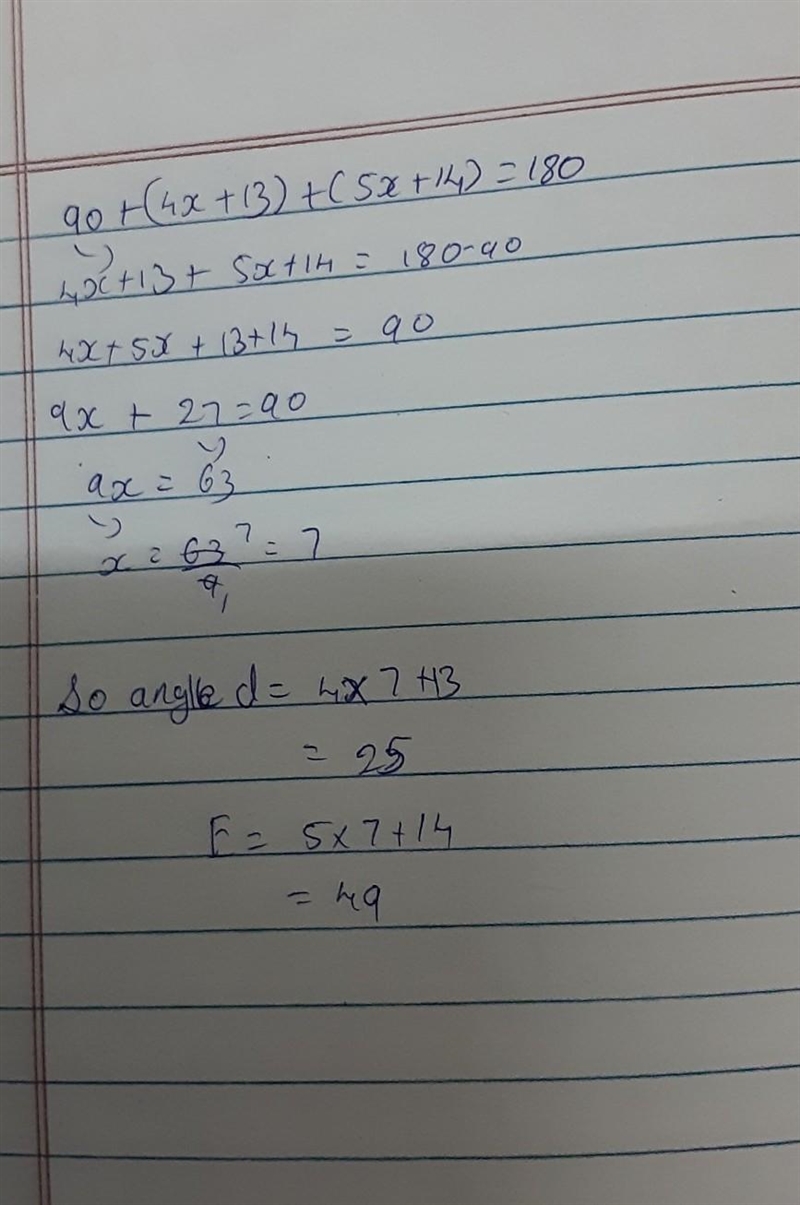 90+(4x+13)+(5x+14)=180
4x+13+ 5x+14 = 180-90
4x+5x+13+14 = 90
9x + 27=90
9x = 63
x = 63/9 7 1 = 7
So angle d= 4x7+13
= 25
F= 5x7+14
= 49